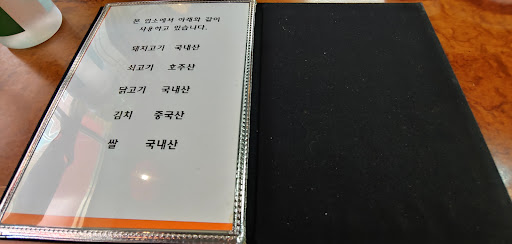 본 업소에서 아래와 같이
사용하고 있습니다.
돼지고기 국내산
쇠고기 호주산
닭고기 국내산
김치 중국산
쌀 국내산